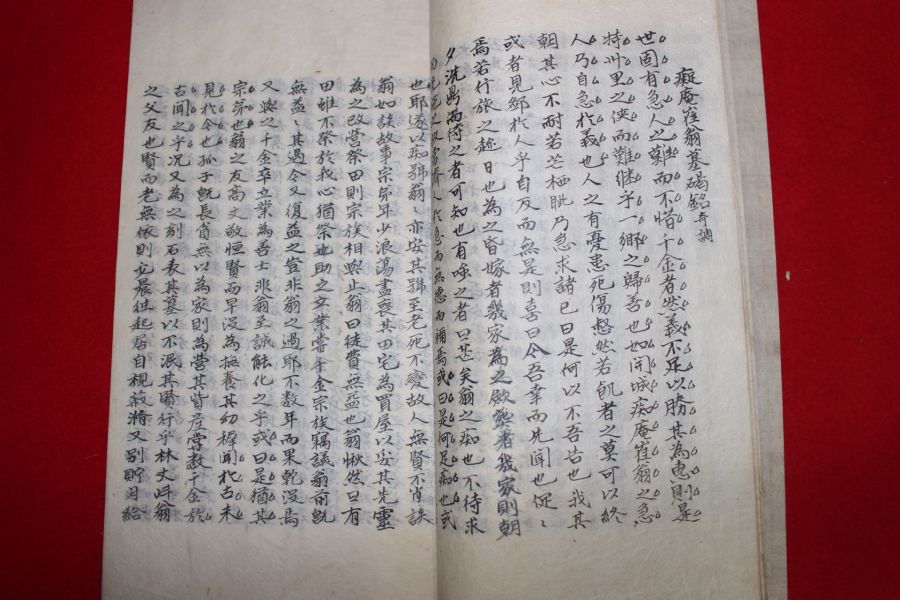 癡庵崔翁墓碣銘 奇調
世固有急人之難而不惜千金者然義不足以勝其為惠則是
特州里之俠而難繼乎一鄉之歸善也如開城痴庵崔翁之急
人乃自急於義也人之有憂患死傷愍然若飢者之莫可以終
朝其心不耐若芒栖眦乃急求諸已曰是何以不吾告也我其
或者見鄙於人乎自反而無是則喜曰今吾幸而先聞也促〻
焉若行旅之趁日也為之昏嫁者幾家為之歛葬者幾家則朝
夕洗鼎而待之者可知也有嗤之者曰甚矣翁之痴也不待求
而先之又以賓濟人於急而無惠而福焉或曰是何足痴也或
也耶遂以痴號翁〻亦安其號至老死不變故人無賢不肖談
翁如談故事宗弟年少浪蕩盡喪其田宅為買屋以安其先靈
為之改營祭田則宗族相與止翁曰徒費無益也翁愀然曰有
田雖不祭於我心猶祭也助之立業嘗千金宗族竊議翁前旣
無益〻其過今又復益之豈非翁之過耶不數年而果乾沒焉
又與之千金卒立業為善士非翁至誠能化之乎或曰是猶其
宗弟也翁之友高丈敬恒賢而早沒為撫養其幼穉聞於古未
見於今也孤子旣長貧無以為家則為營其貲產嘗數千金於
古聞之乎況又為之刻石表其墓以不泯其賢行乎林丈 翁
之父友也賢而老無依則 晨往起居自視 滫又別貯月給